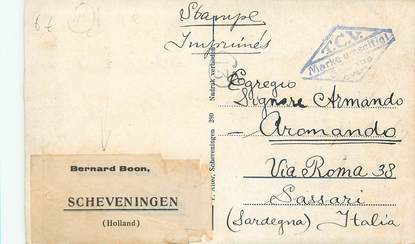 Stampe
Imprimés
T.C.V.
Egregio
Signore Armando
Aromando
Via Roma 38
Sassari
(Sardegna) Italia
Nadruk verboden
Scheveningen 280
Bernard Boon,
SCHEVENINGEN
(Holland)